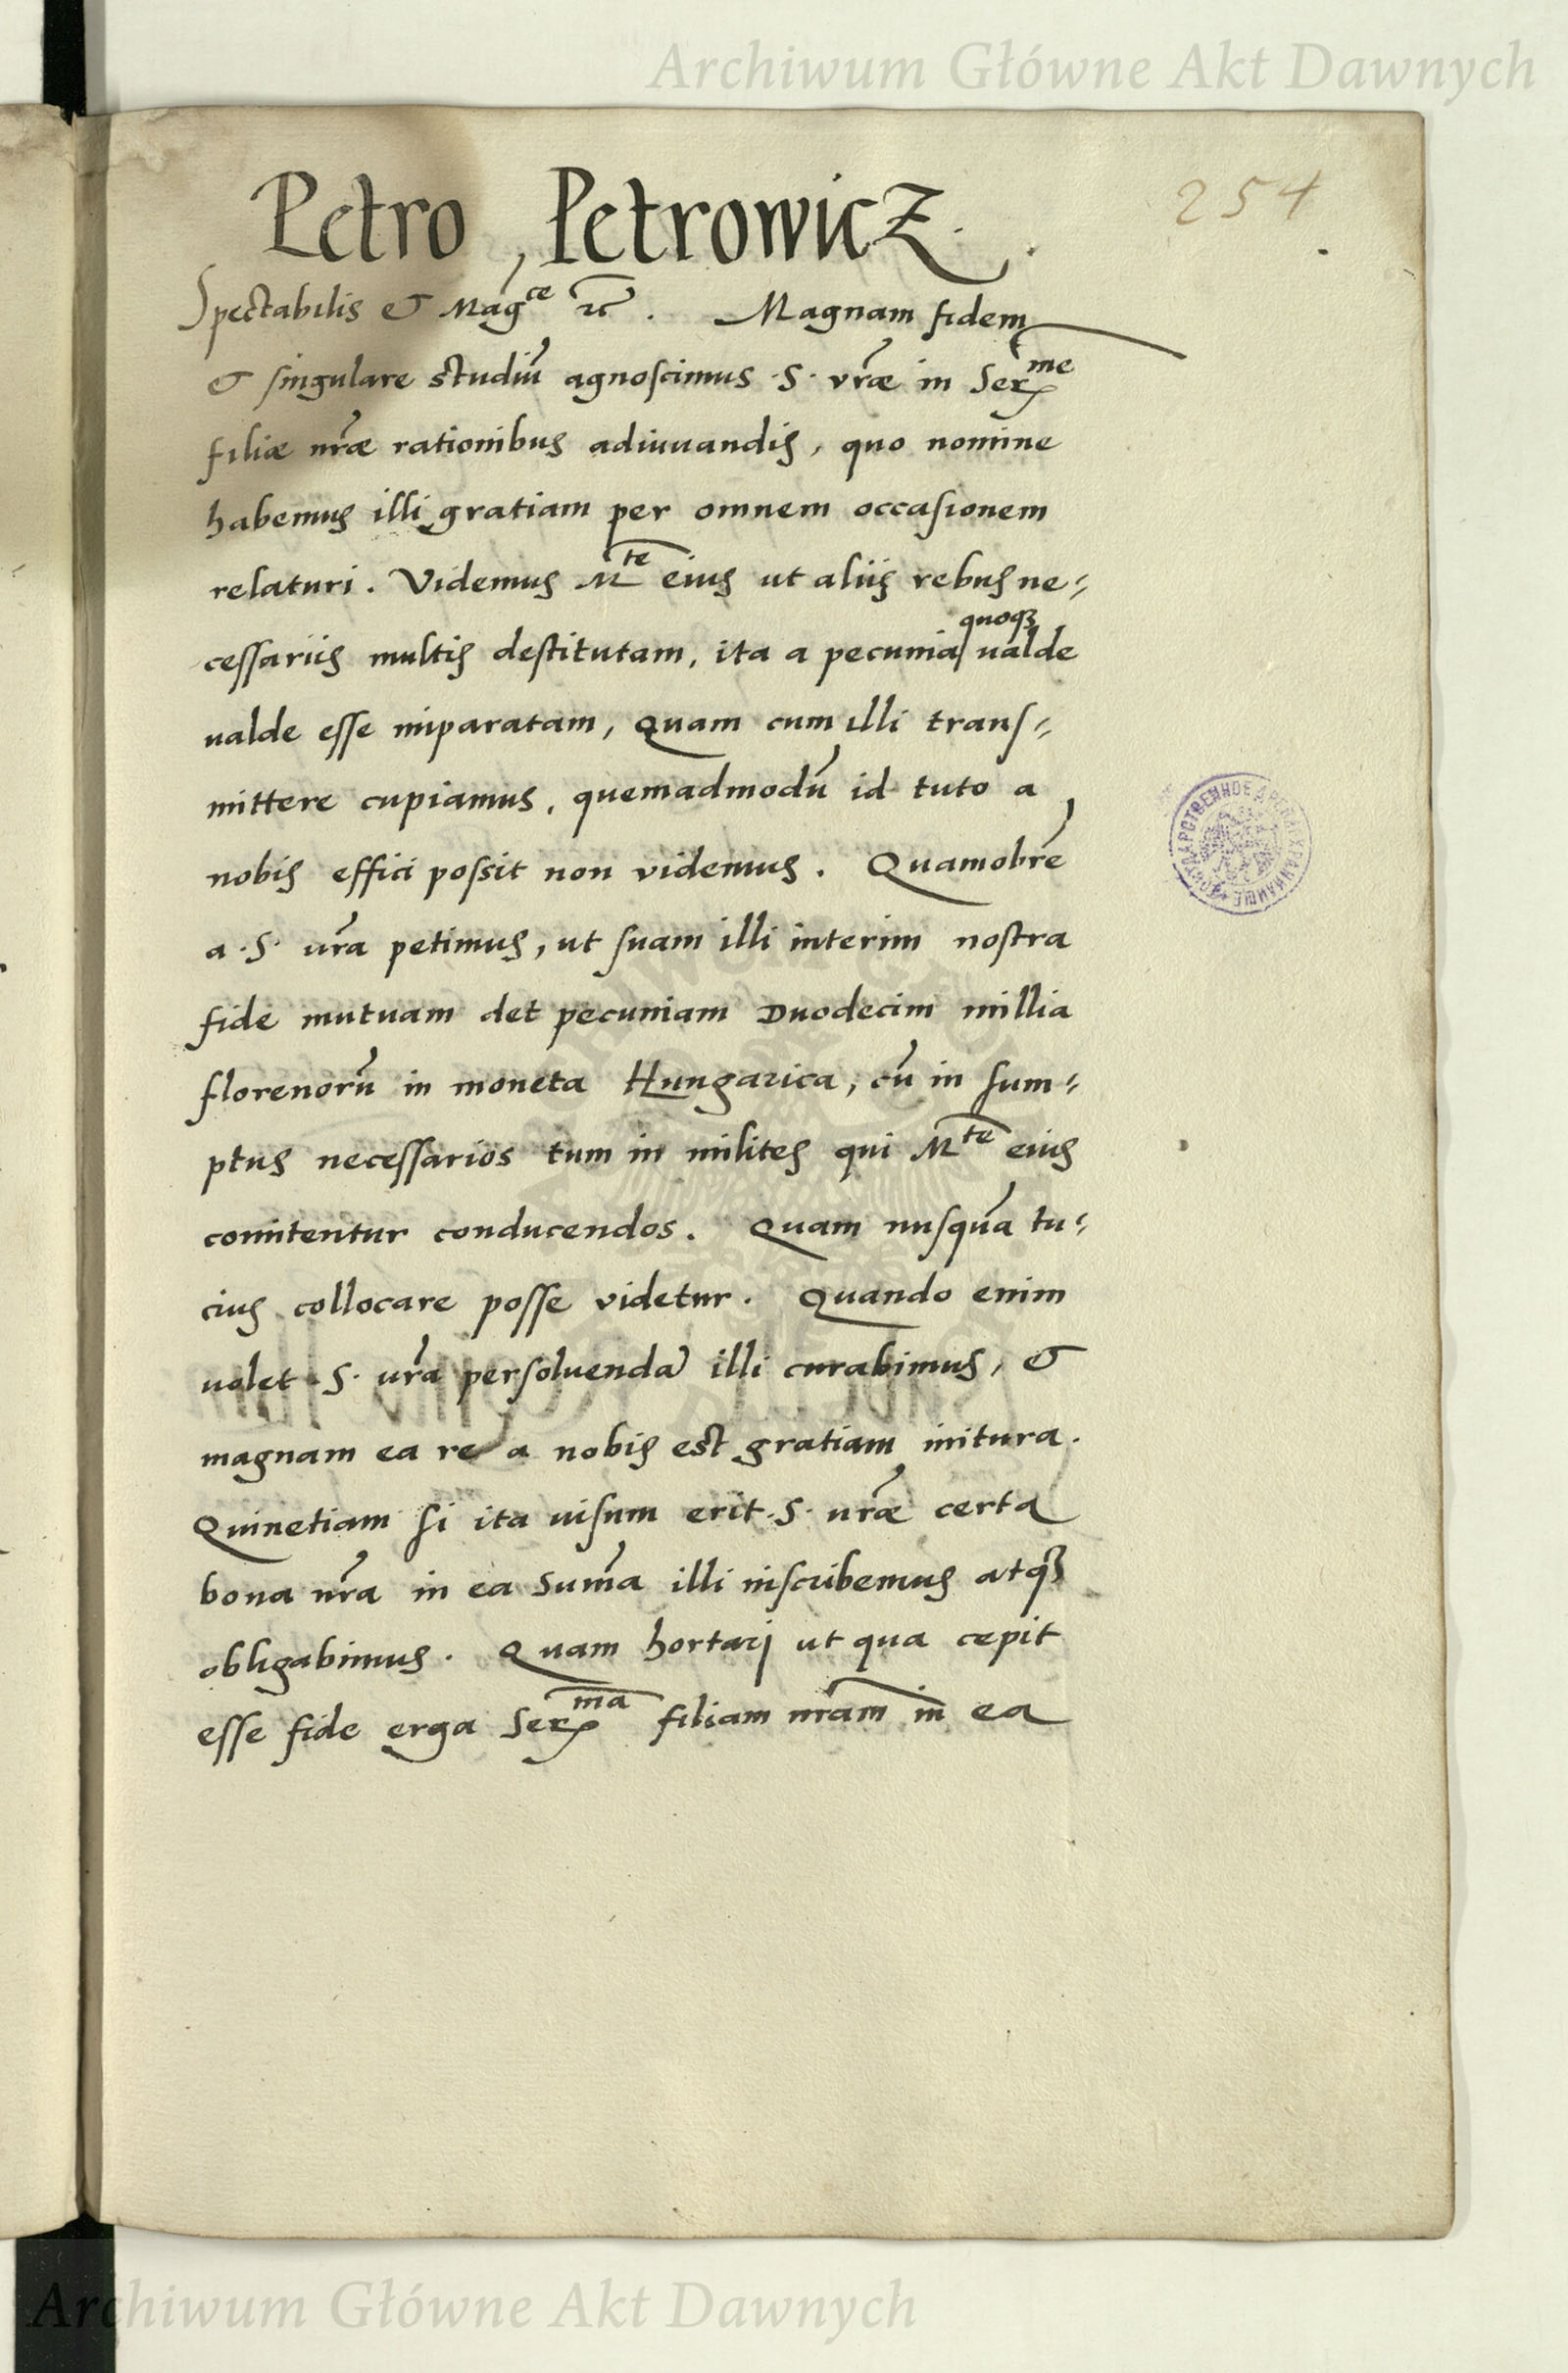 Archiwum Główne Akt Dawnych
254
Petro Petrowicz.
Spectabilis & Mag̃ce ꝛc̃. Magnam fidem
& singulare studiũ agnoscimus .S. vr̃æ in Serme
filiæ nr̃æ rationibus adiuuandis, quo nomine
habemus illi gratiam per omnem occasionem
relaturi. Videmus Mte eius ut aliis rebus ne=
quoqȝ
cessariis multis destitutam, ita a pecunia ualde
ualde esse imparatam, Quam cum illi trans=
mittere cupiamus, quemadmodũ id tuto a
nobis effici possit non videmus. Quamobrẽ
a .S. ur̃a petimus, ut suam illi interim nostra
fide mutuam det pecuniam Duodecim millia
florenorũ in moneta Hungarica, cũ in sum=
ptus necessarios tum in milites qui Mte eius
comitentur conducendos. Quam nusquã tu=
cius collocare posse videtur. Quando enim
uolet .S. ur̃a persoluendã illi curabimus, &
magnam ea re a nobis est gratiam initura.
Quinetiam si ita uisum erit .S. ur̃æ certa
bona nr̃a in ea Sum̃a illi inscribemus atqȝ
obligabimus. Quam hortarj ut qua cepit
esse fide erga Serma filiam nr̃am in ea
Archiwum Główne Akt Dawnych